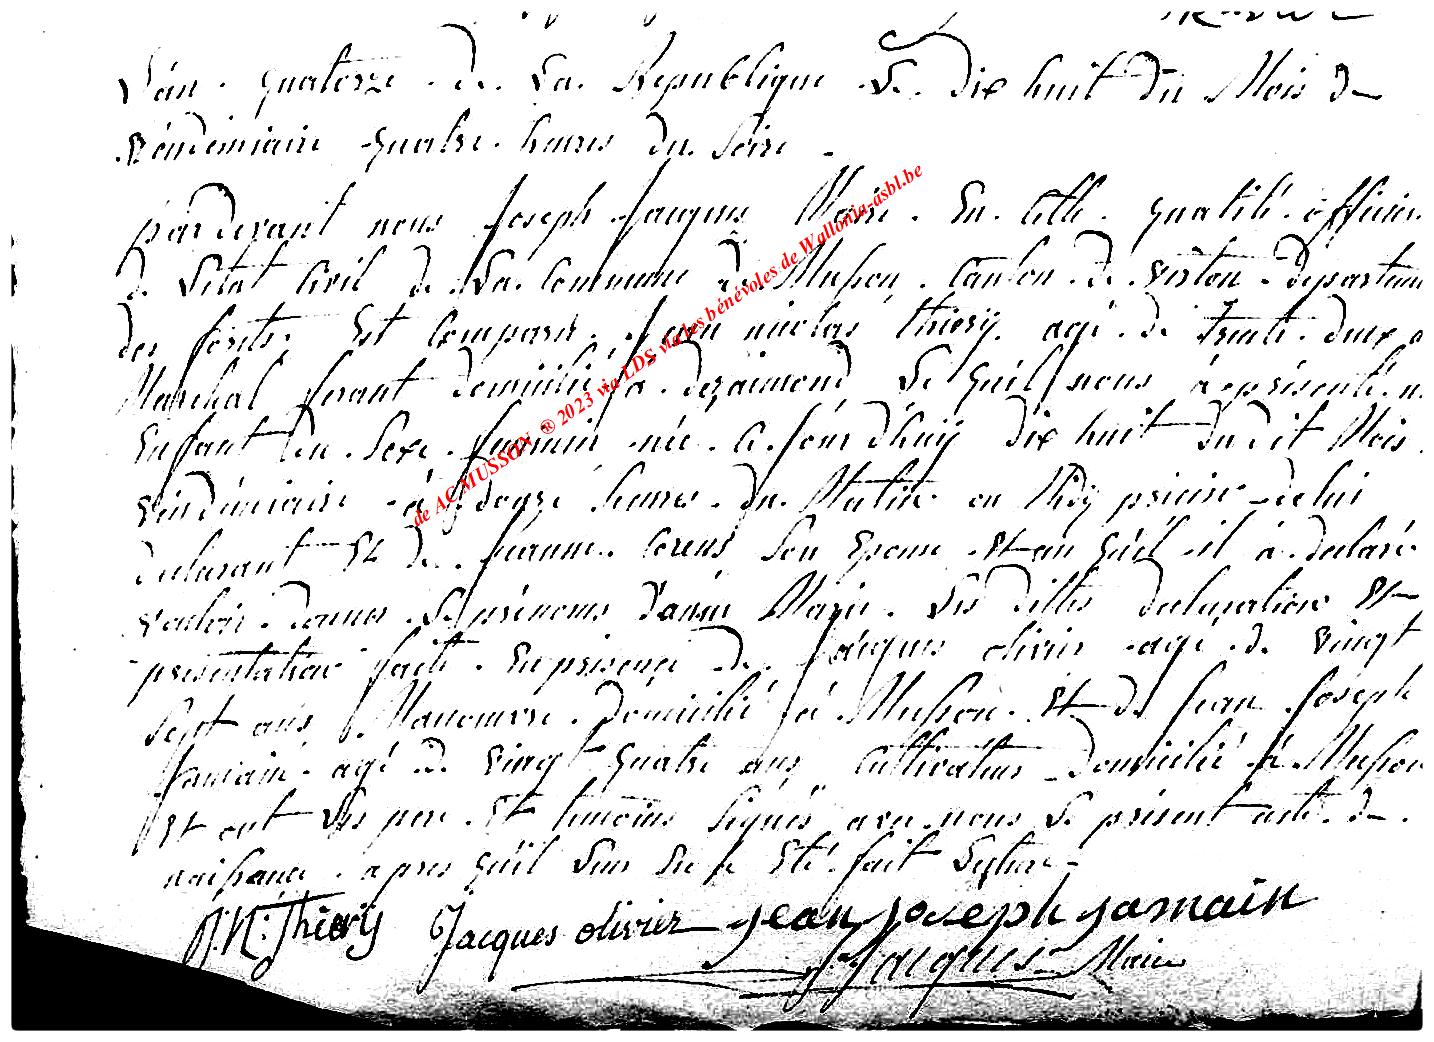 L'an quatorze de La Republique Le dix huit du Mois de
vendemiaire quatre heures du soire
pardevant nous Joseph Jacques Maire En cette quatité officier
de Letat Civil de La Commune de Musson Canton de virton departem
des forêts Est Comparu Jean nicolas thiery agé de trente deux a
Marchal ferant domicilié à Le quel nous à présenté u
Enfant du Sexe feminin née Ce jourd'huy dix huit du dit Mois
vendémiaire à douze heures du Matin ou Midy de lui
declarant Et de Jeanne Son Epouse Et au quel il à declaré
vouloir donner Le prénoms d'anne Marie Les dittes declaration Et
presentation faite En presence de Jacques olivier agé de vingt
Sept ans Manouvre domicilié à Musson Et de Jean Joseph
Jamain agé de vingt quatre ans Cultivateur domicilié à Musson
Et ont Les pere Et temoins Signés avec nous Le présent acte de
naissance apres quil Leur En a Eté fait Lecture
J. N: Thiery Jacques olivier jean joseph jamain
J. Jacques Maire
de AC MUSSON ® 2023 via LDS via les bénévoles de Wallonia-asbl.be